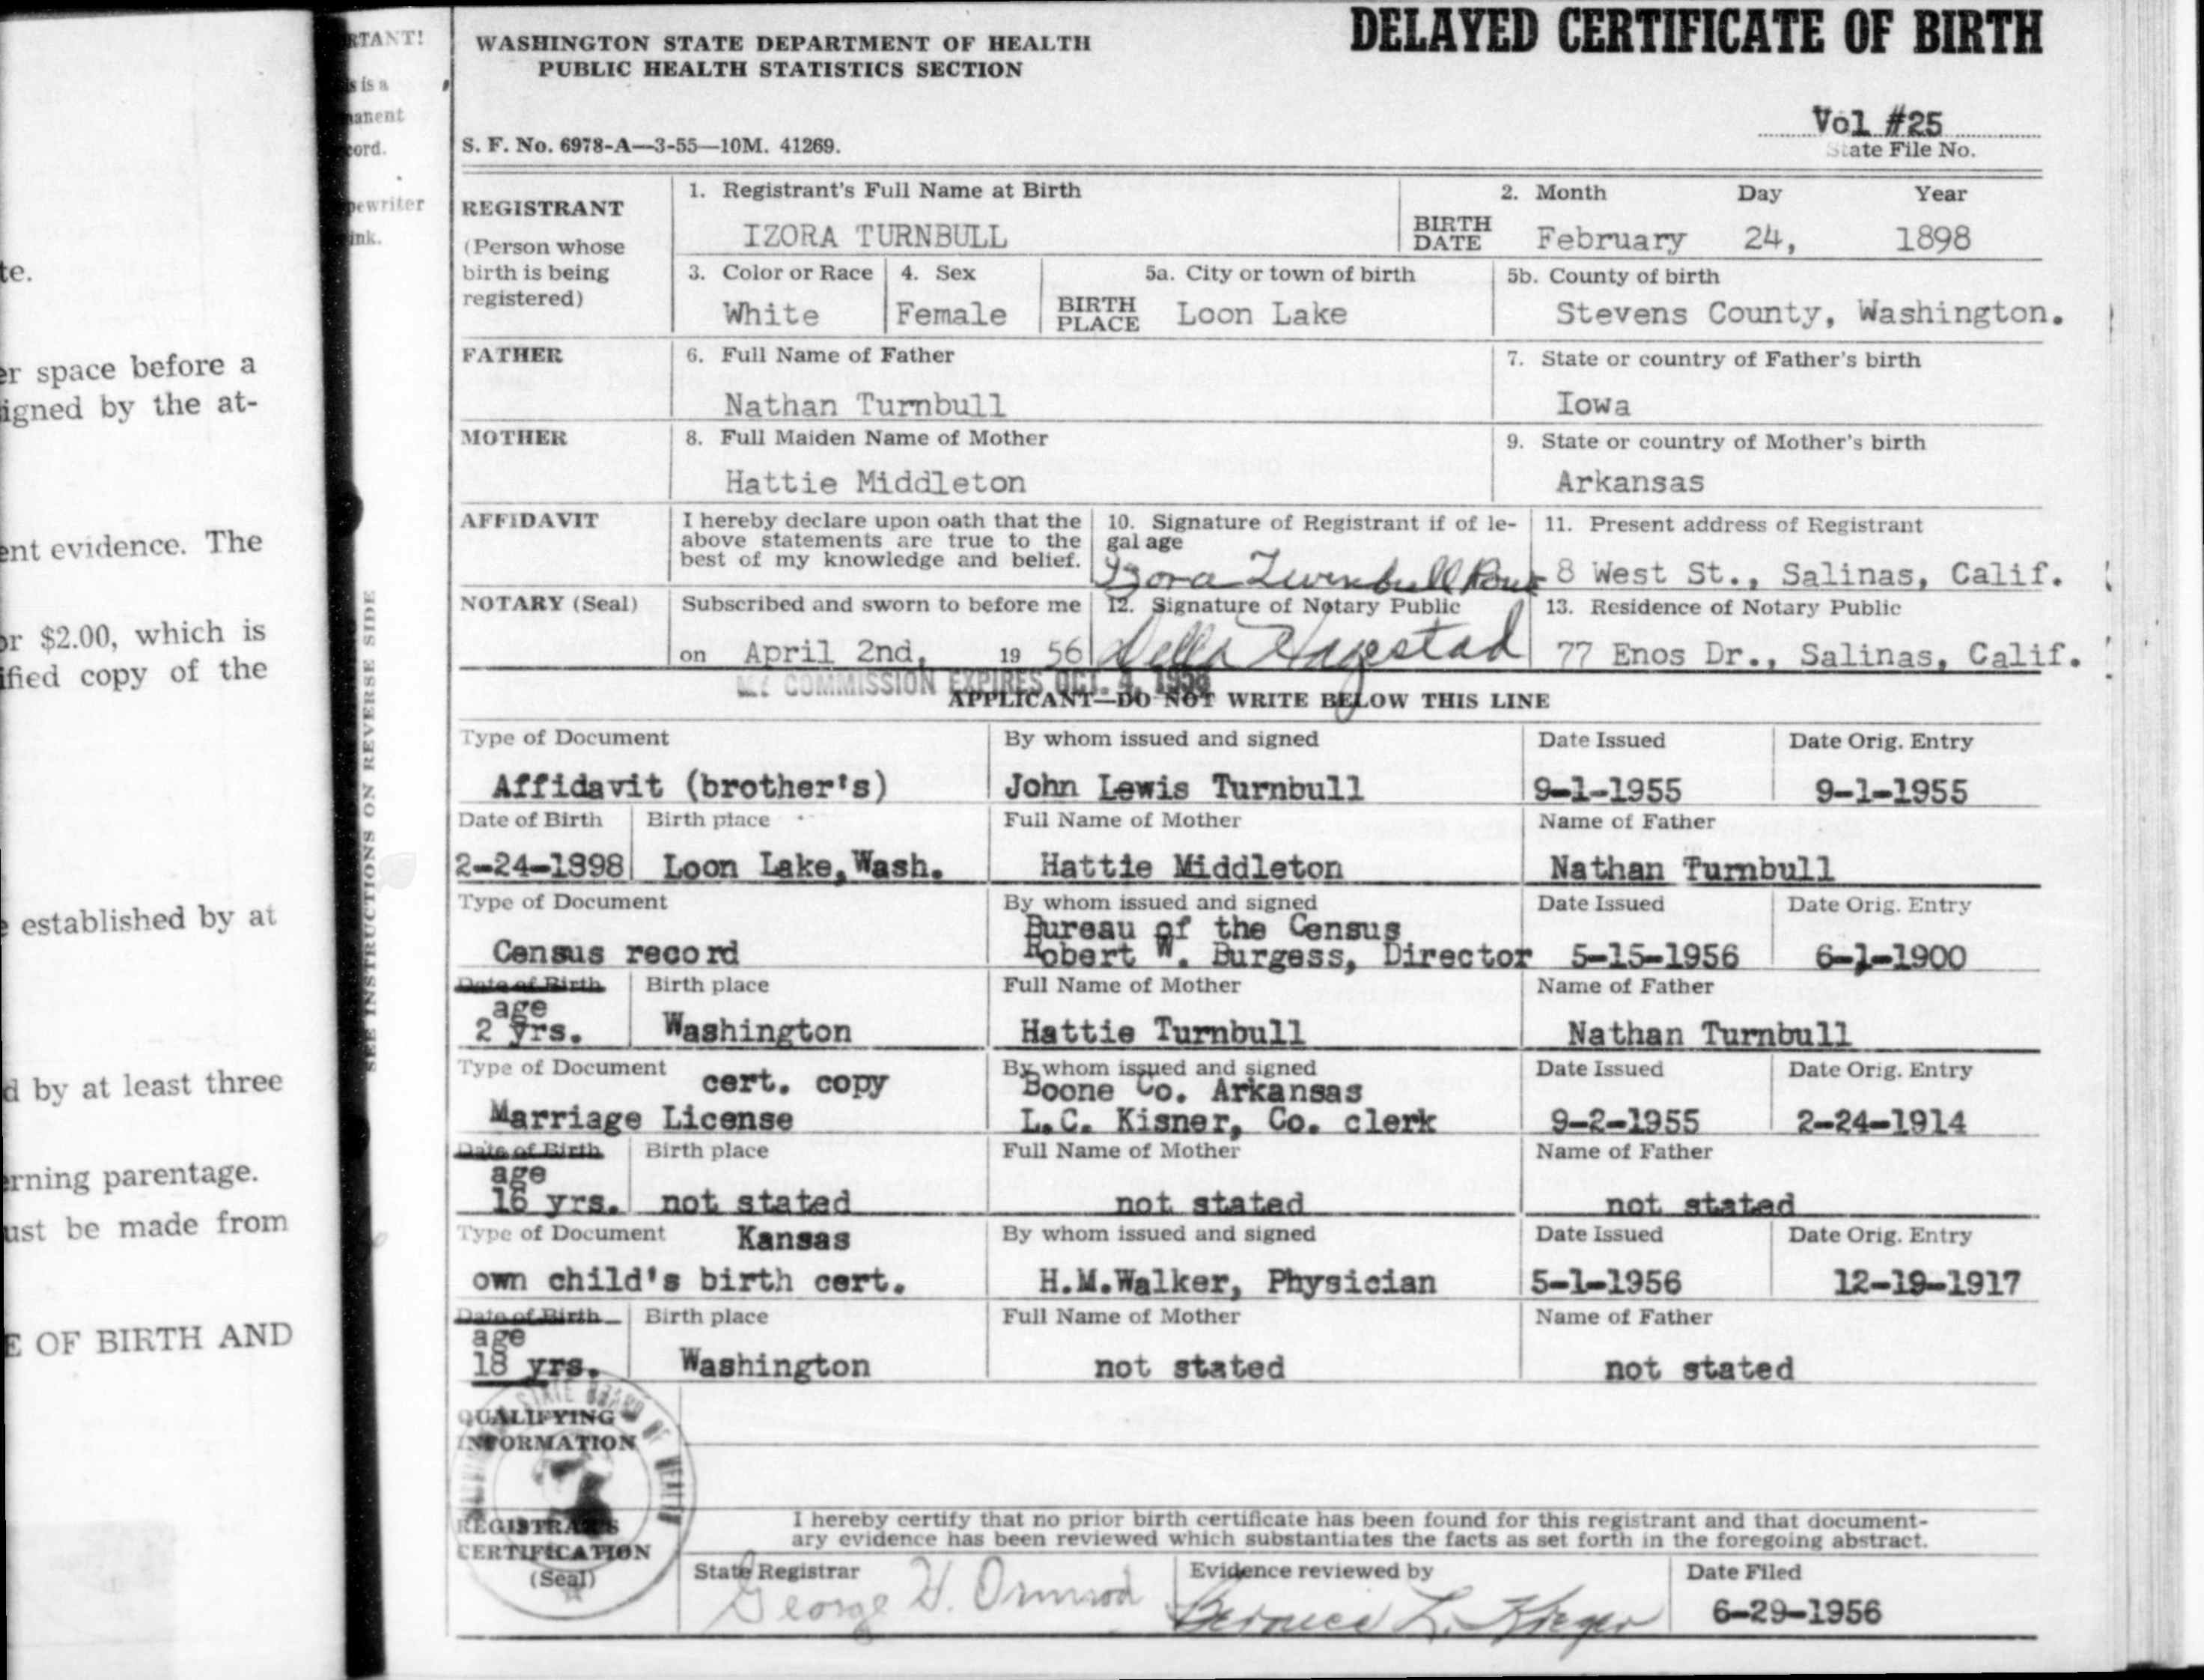 te.
er space before a
igned by the at-
ent evidence. The
or $2.00, which is
ified copy of the
e established by at
d by at least three
erning parentage.
ust be made from
E OF BIRTH AND
RTANT!
s is a
manent
cord.
pewriter
ink.
SEE INSTRUCTIONS ON REVERSE SIDE
WASHINGTON STATE DEPARTMENT OF HEALTH
PUBLIC HEALTH STATISTICS SECTION
DELAYED CERTIFICATE OF BIRTH
Vol #25
State File No.
S. F. No. 6978-A—3-55—10M. 41269.
REGISTRANT
(Person whose
birth is being
registered)
1. Registrant's Full Name at Birth
IZORA TURNBULL
BIRTH
DATE
2. Month Day Year
February 24, 1898
3. Color or Race
White
4. Sex
Female
BIRTH
PLACE
5a. City or town of birth
Loon Lake
5b. County of birth
Stevens County, Washington.
FATHER
6. Full Name of Father
Nathan Turnbull
7. State or country of Father's birth
Iowa
MOTHER
8. Full Maiden Name of Mother
Hattie Middleton
9. State or country of Mother's birth
Arkansas
AFFIDAVIT
I hereby declare upon oath that the
above statements are true to the
best of my knowledge and belief.
10. Signature of Registrant if of le-
gal age
Izora Turnbull
11. Present address of Registrant
8 West St., Salinas, Calif.
NOTARY (Seal)
Subscribed and sworn to before me
on April 2nd, 19 56
12. Signature of Notary Public
Della Hagestad
13. Residence of Notary Public
77 Enos Dr., Salinas, Calif.
MY COMMISSION EXPIRES OCT. 4, 1958
APPLICANT—DO NOT WRITE BELOW THIS LINE
Type of Document By whom issued and signed Date Issued Date Orig. Entry
Affidavit (brother's) John Lewis Turnbull 9-1-1955 9-1-1955
Date of Birth Birth place Full Name of Mother Name of Father
2-24-1898 Loon Lake, Wash. Hattie Middleton Nathan Turnbull
Type of Document By whom issued and signed Date Issued Date Orig. Entry
Bureau of the Census
Census record Robert W. Burgess, Director 5-15-1956 6-1-1900
Date of Birth Birth place Full Name of Mother Name of Father
age
2 yrs. Washington Hattie Turnbull Nathan Turnbull
Type of Document By whom issued and signed Date Issued Date Orig. Entry
cert. copy Boone Co. Arkansas
Marriage License L.C. Kisner, Co. clerk 9-2-1955 2-24-1914
Date of Birth Birth place Full Name of Mother Name of Father
age
16 yrs. not stated not stated not stated
Type of Document Kansas By whom issued and signed Date Issued Date Orig. Entry
own child's birth cert. H.M.Walker, Physician 5-1-1956 12-19-1917
Date of Birth Birth place Full Name of Mother Name of Father
age
18 yrs. Washington not stated not stated
QUALIFYING
INFORMATION
REGISTRAR'S
CERTIFICATION
(Seal)
I hereby certify that no prior birth certificate has been found for this registrant and that document-
ary evidence has been reviewed which substantiates the facts as set forth in the foregoing abstract.
State Registrar
George H. Ormrod
Evidence reviewed by
Bernice L. Kreger
Date Filed
6-29-1956